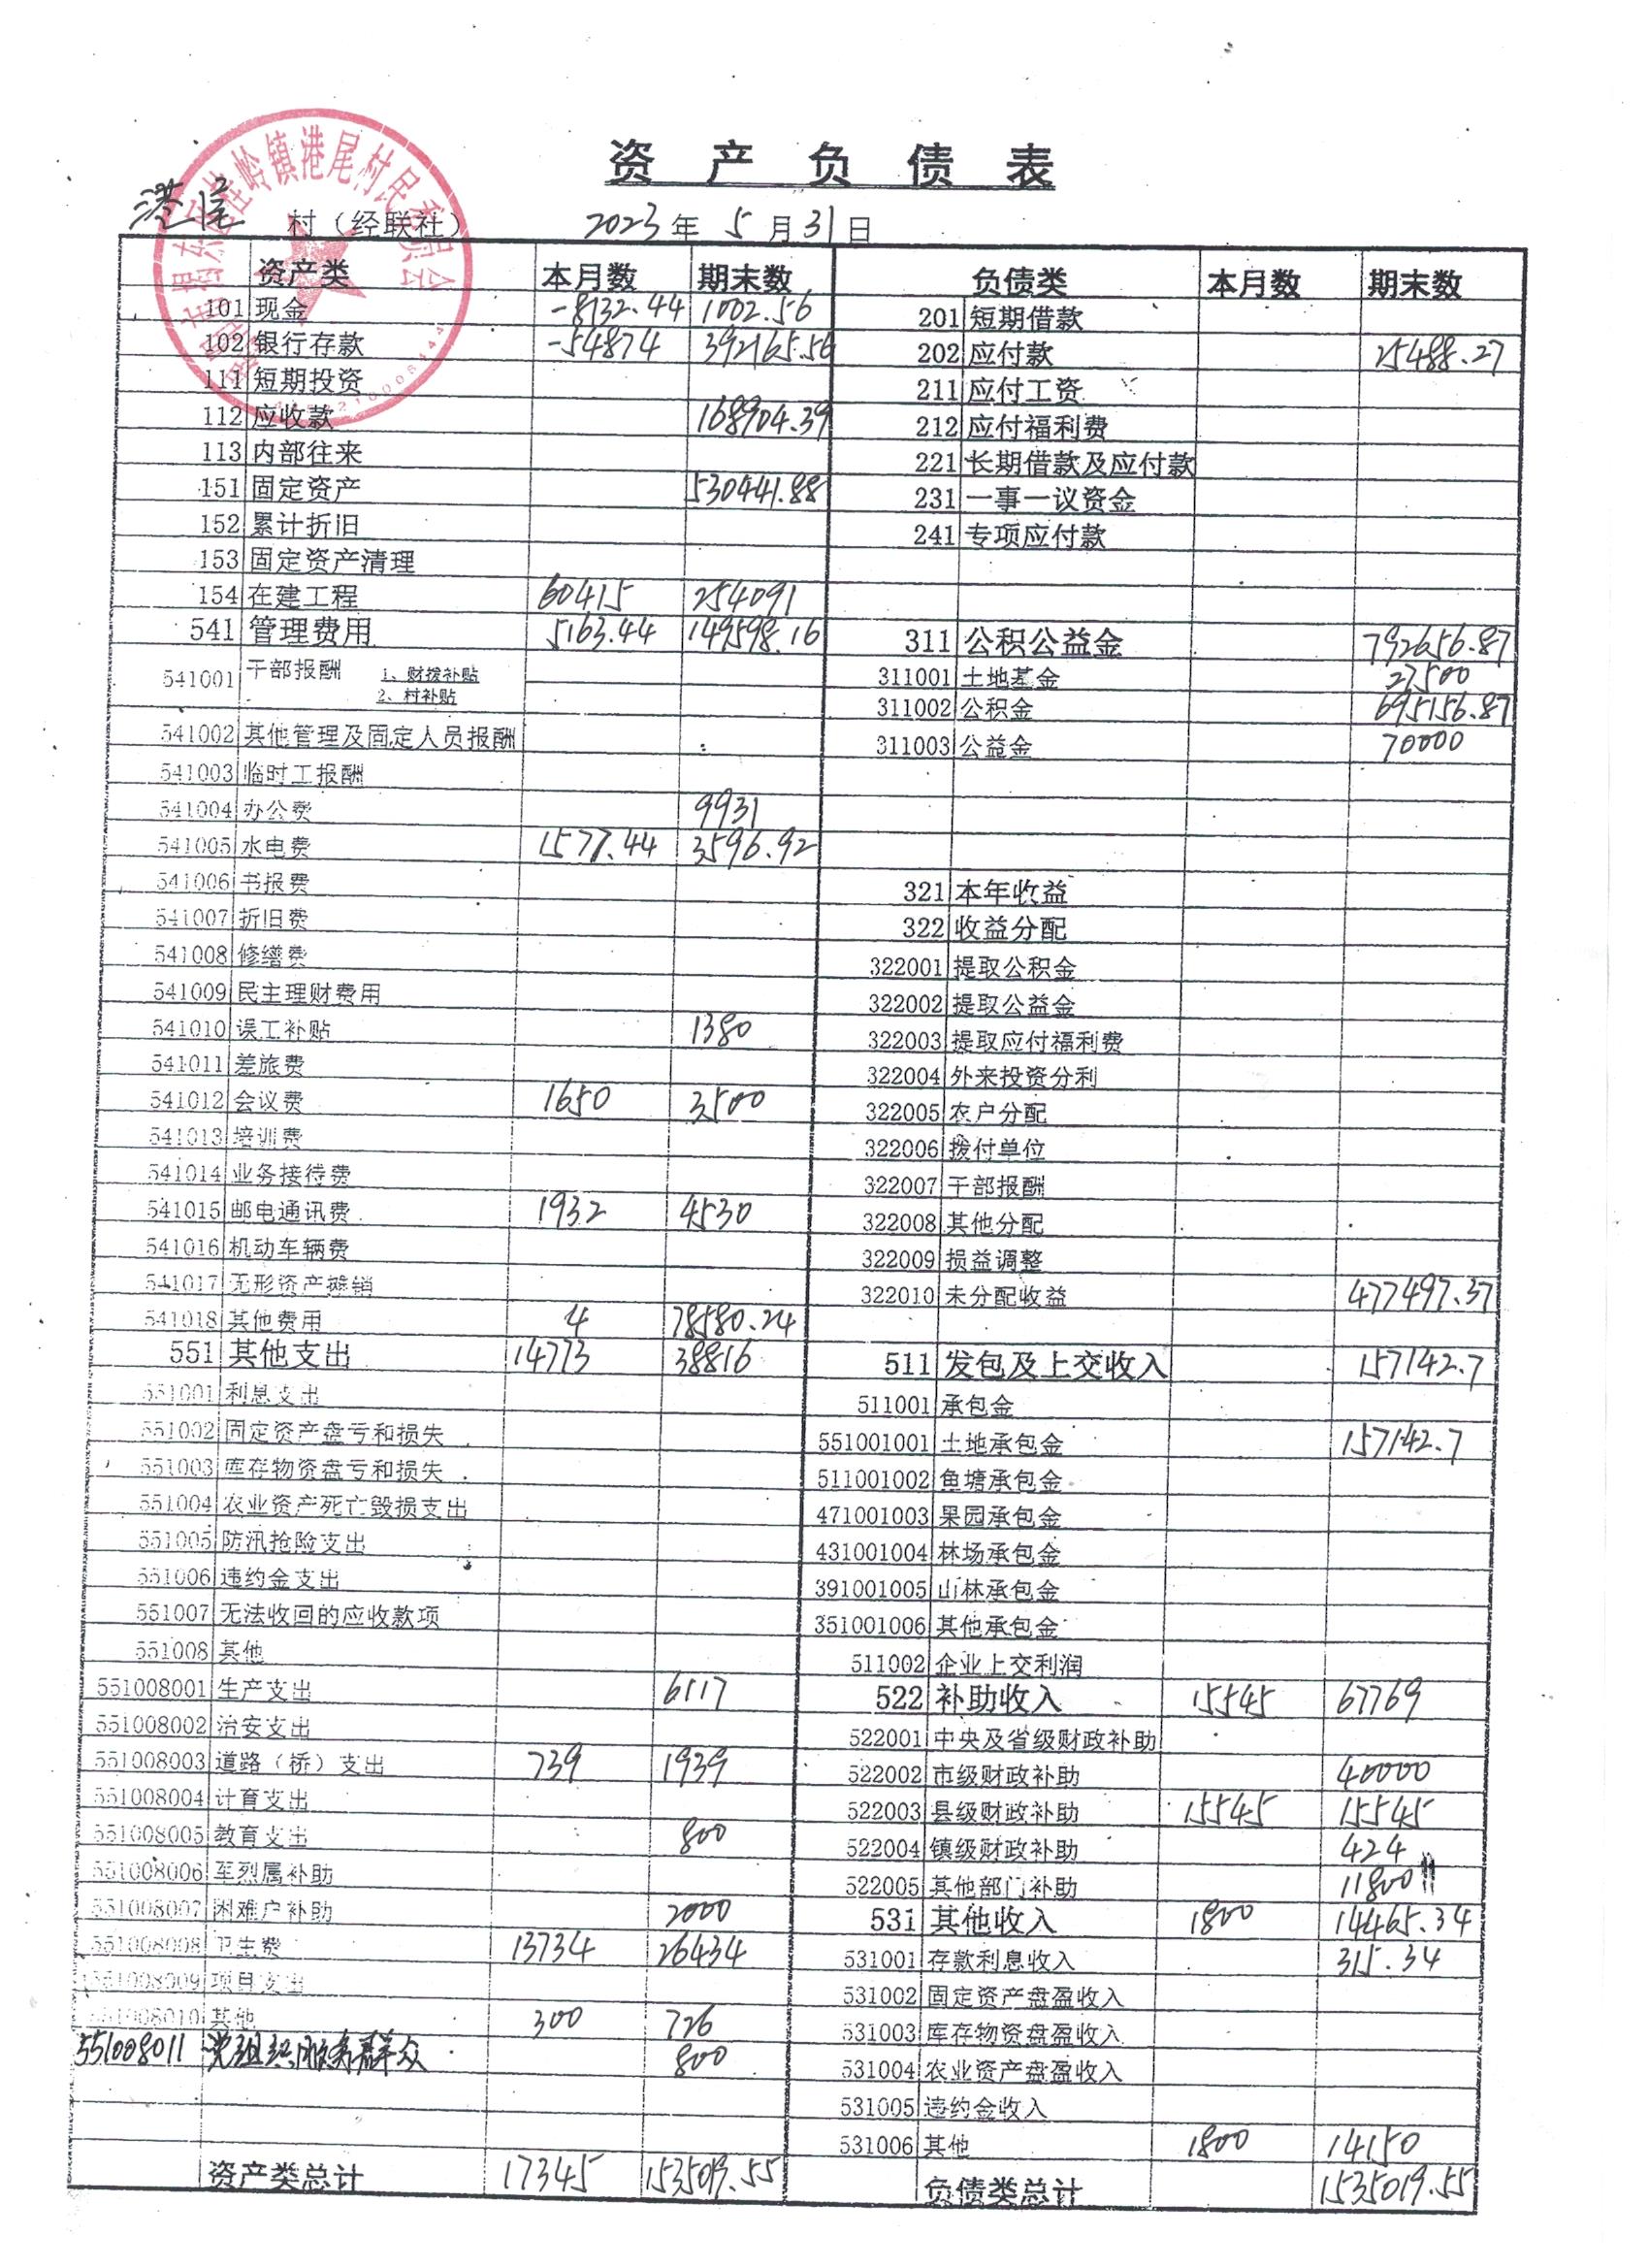 资产负债表
港尾 村（经联社） 2023年 5月31日
资产类 本月数 期末数 负债类 本月数 期末数
101 现金 -8132.44 1002.56 201 短期借款
102 银行存款 -54874 392165.56 202 应付款 25488.27
111 短期投资 211 应付工资
112 应收款 168904.39 212 应付福利费
113 内部往来 221 长期借款及应付款
151 固定资产 530441.88 231 一事一议资金
152 累计折旧 241 专项应付款
153 固定资产清理
154 在建工程 60415 254091
541 管理费用 5163.44 149598.16 311 公积公益金 792656.87
541001 干部报酬 1、财拨补贴 311001 土地基金 27500
2、村补贴 311002 公积金 695156.87
541002 其他管理及固定人员报酬 311003 公益金 70000
541003 临时工报酬
541004 办公费 9931
541005 水电费 1577.44 3596.92
541006 书报费 321 本年收益
541007 折旧费 322 收益分配
541008 修缮费 322001 提取公积金
541009 民主理财费用 322002 提取公益金
541010 误工补贴 1380 322003 提取应付福利费
541011 差旅费 322004 外来投资分利
541012 会议费 1650 3500 322005 农户分配
541013 培训费 322006 拨付单位
541014 业务接待费 322007 干部报酬
541015 邮电通讯费 1932 4530 322008 其他分配
541016 机动车辆费 322009 损益调整
541017 无形资产摊销 322010 未分配收益 477497.37
541018 其他费用 4 78580.24
551 其他支出 14773 38816 511 发包及上交收入 157142.7
551001 利息支出 511001 承包金
551002 固定资产盘亏和损失 551001001 土地承包金 157142.7
551003 库存物资盘亏和损失 511001002 鱼塘承包金
551004 农业资产死亡毁损支出 471001003 果园承包金
551005 防汛抢险支出 431001004 林场承包金
551006 违约金支出 391001005 山林承包金
551007 无法收回的应收款项 351001006 其他承包金
551008 其他 511002 企业上交利润
551008001 生产支出 6117 522 补助收入 15545 67769
551008002 治安支出 522001 中央及省级财政补助
551008003 道路（桥）支出 739 1939 522002 市级财政补助 40000
551008004 计育支出 522003 县级财政补助 15545 15545
551008005 教育支出 800 522004 镇级财政补助 424
551008006 军烈属补助 522005 其他部门补助 11800
551008007 困难户补助 2000 531 其他收入 1800 14465.34
551008008 卫生费 13734 26434 531001 存款利息收入 315.34
551008009 项目支出 531002 固定资产盘盈收入
551008010 其他 300 726 531003 库存物资盘盈收入
551008011 党组织服务群众 800 531004 农业资产盘盈收入
531005 违约金收入
531006 其他 1800 14150
资产类总计 17345 1535019.55 负债类总计 1535019.55